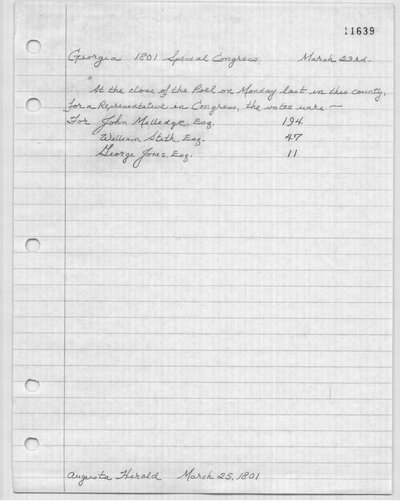 11639
Georgia 1801 Special Congress March 23rd.
"At the close of the Poll on Monday last in this county,
for a Representative in Congress, the votes were —
For John Milledge, Esq. 194
William Stith, Esq. 47
George Jones, Esq. 11
Augusta Herald March 25, 1801